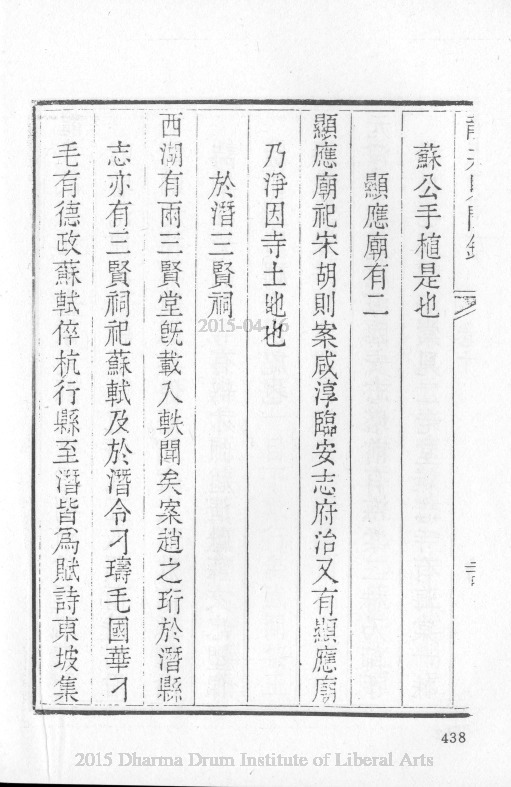 蘇公手植是也
顯應廟有二
顯應廟祀宋胡則案咸淳臨安志府治又有顯應廟
乃淨因寺土地也
於潛三賢祠
西湖有兩三賢堂旣載入軼聞矣案趙之珩於潛縣
志亦有三賢祠祀蘇軾及於潛令刁璹毛國華刁
毛有德政蘇軾倅杭行縣至潛皆爲賦詩東坡集
2015-04-
438
2015 Dharma Drum Institute of Liberal Arts